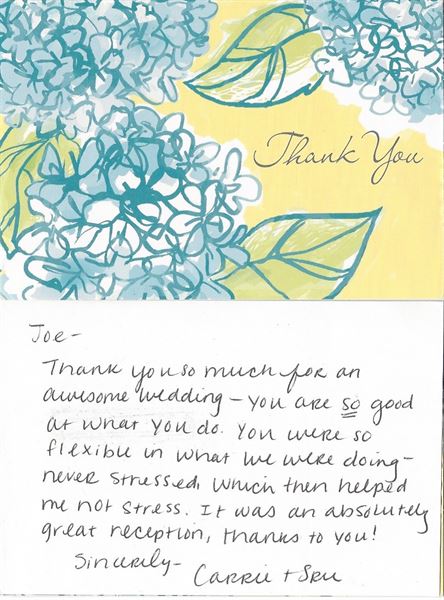 Thank You
Joe-
Thank you so much for an
awesome wedding - you are so good
at what you do. You were so
flexible in what we were doing-
never stressed, which then helped
me not stress. It was an absolutely
great reception, thanks to you!
Sincerely-
Carrie + Sru